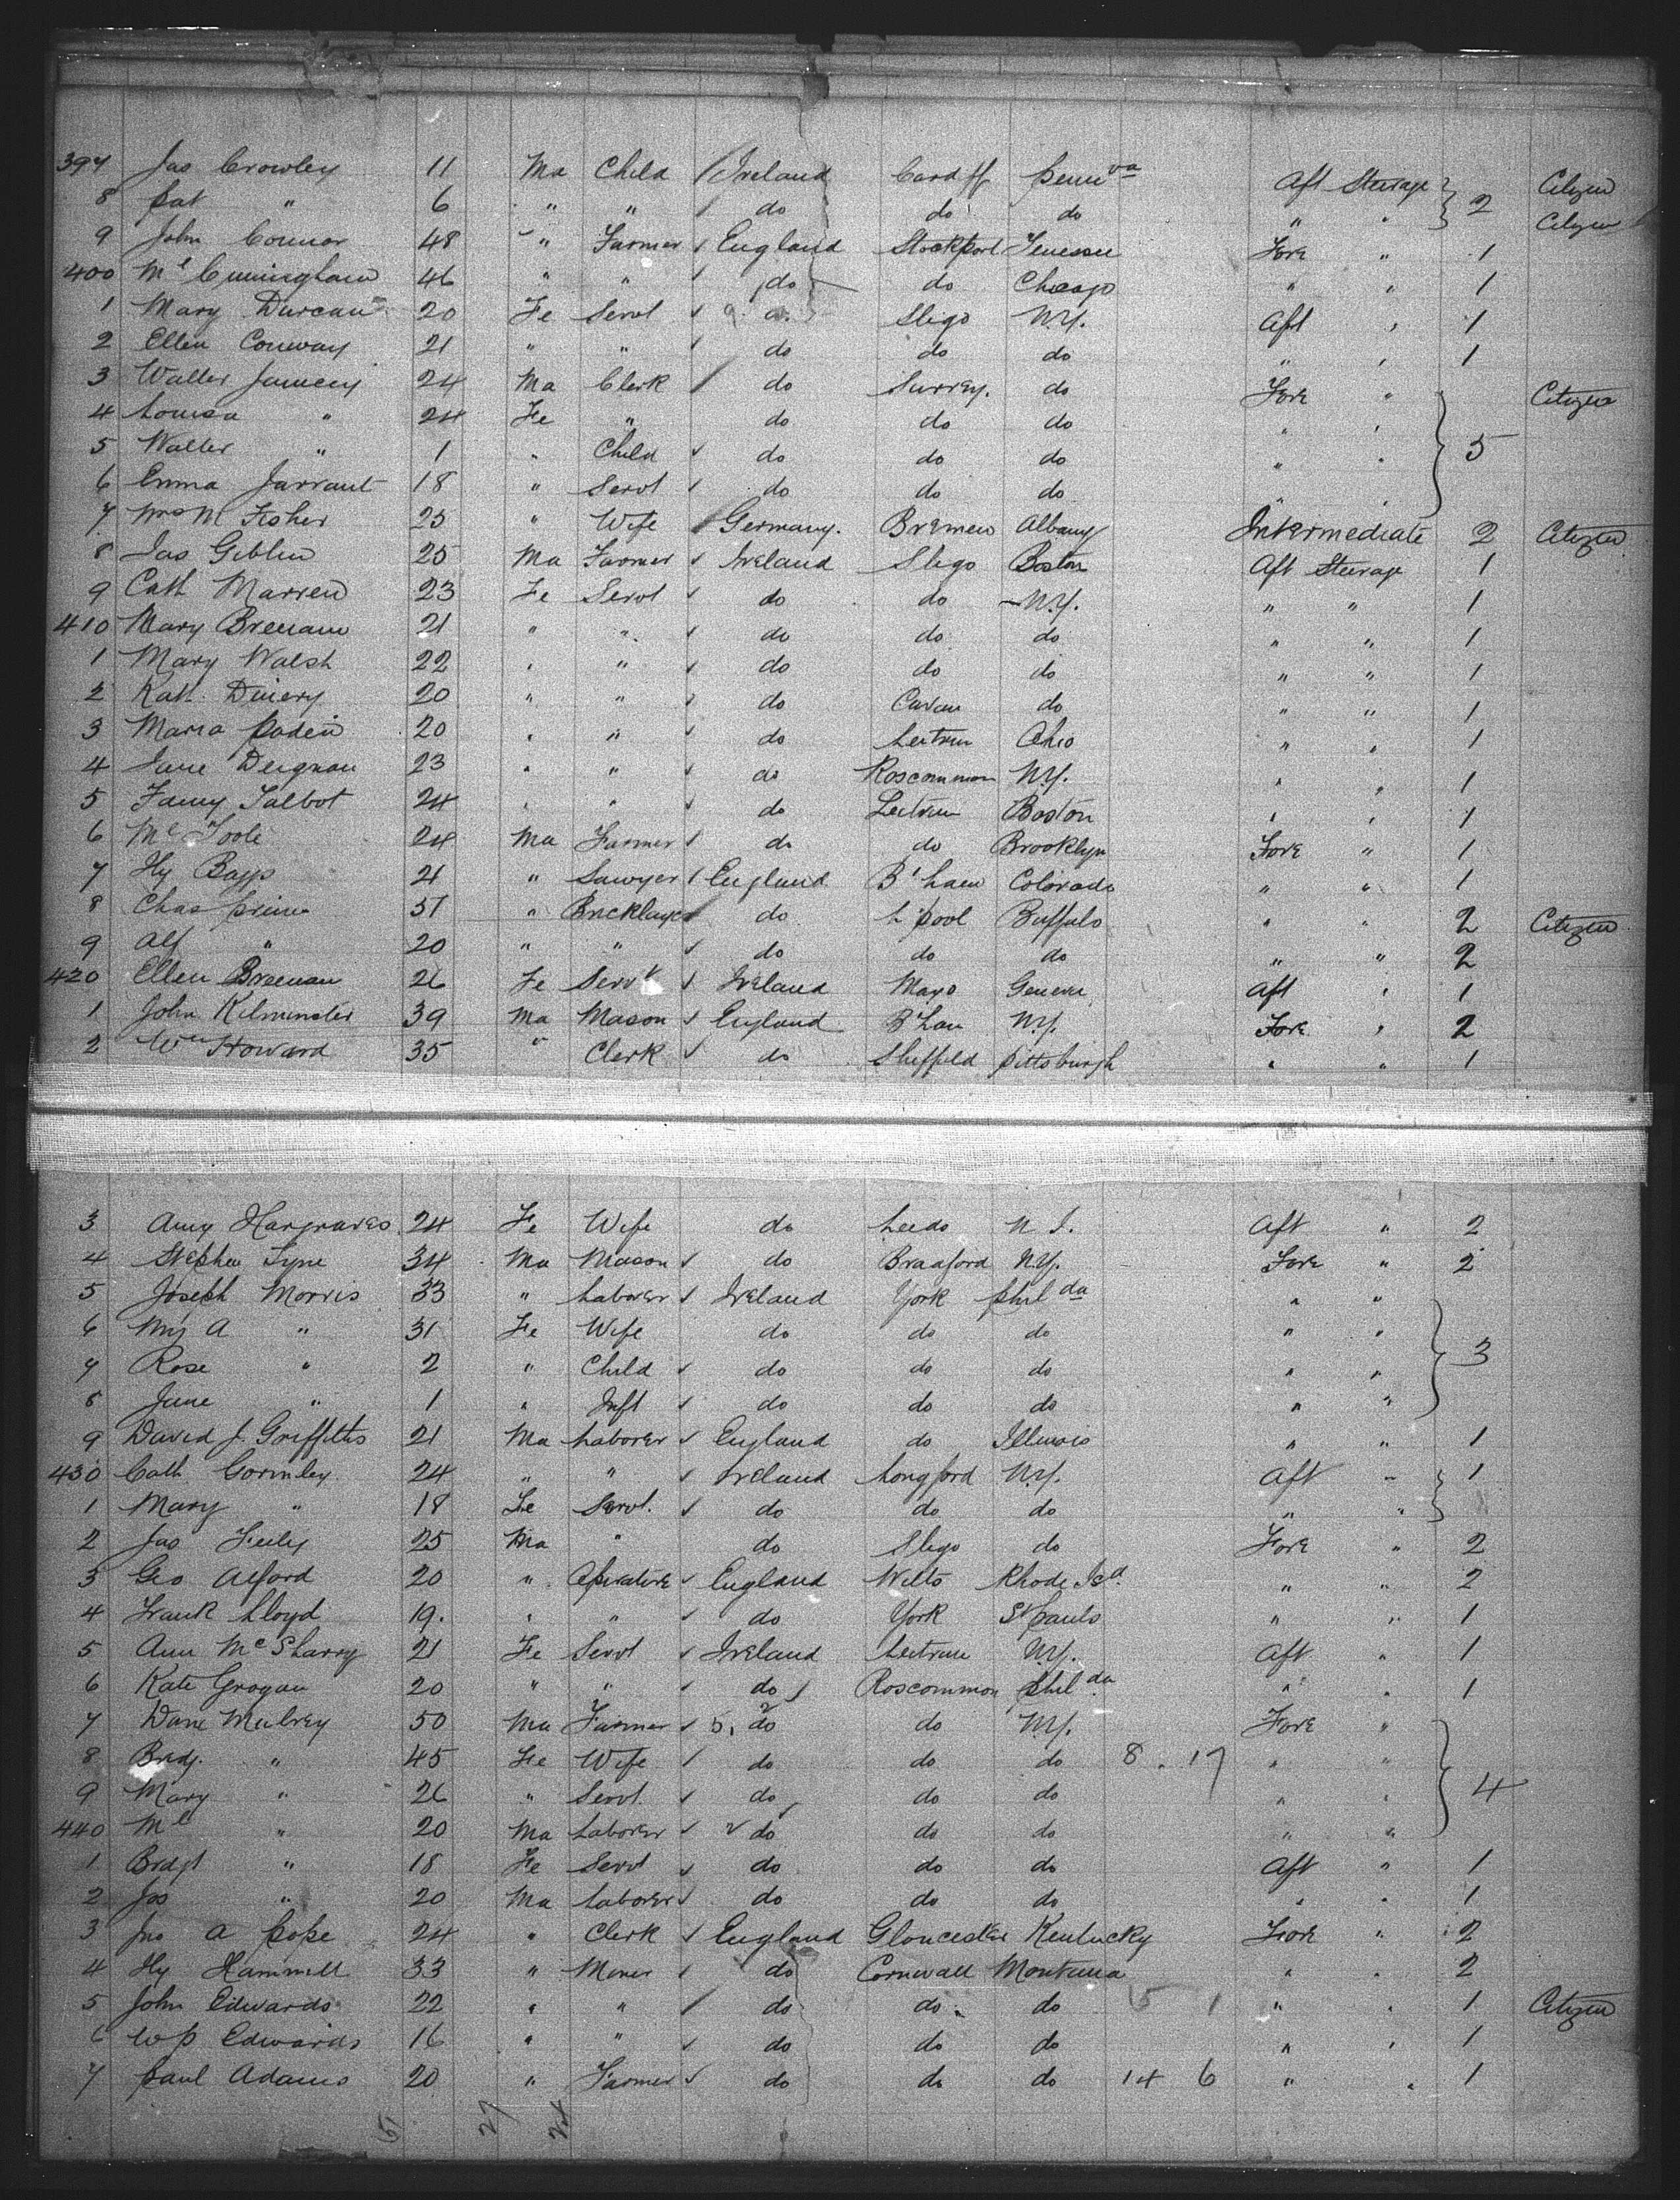 397 Jas Crowley 11 Ma Child Ireland Cardiff Pennva Aft Steerage 2 Citizen
8 Pat " 6 " " do do do " " Citizen
9 John Connor 48 " Farmer England Stockport Tenessee Fore " 1
400 Ml Cunningham 46 " " do do Chicago " " 1
1 Mary Durcan 20 Fe Servt Sligo N.Y. Aft " 1
2 Ellen Conway 21 " " do do do " " 1
3 Walter 24 Ma Clerk do Surrey. do Fore " Citizen
4 Louisa " 24 Fe " do do do " " 5
5 Walter " 1 " Child do do do " "
6 Emma Jarrant 18 " Servt do do do " "
7 Mrs M Fisher 25 " Wife Germany. Bremen Albany Intermediate 2 Citizen
8 Jas Giblin 25 Ma Farmer Ireland Sligo Boston Aft Steerage 1
9 Cath Marren 23 Fe Servt do do N.Y. " " 1
410 Mary Brenann 21 " " do do do " " 1
1 Mary Walsh 22 " " do do do " " 1
2 Kath. 20 " " do Cavan do " " 1
3 Maria Padein 20 " " do Leitrim Ohio " " 1
4 Jane Deignan 23 " " do Roscommon N.Y. " " 1
5 Fanny Talbot 24 " " do Leitrim Boston " " 1
6 Ml Toole 24 Ma Farmer do do Brooklyn Fore " 1
7 Hy Baggs 21 " Sawyer England B'ham Colorado " " 1
8 Chas Prime 31 " Bricklayer do L'pool Buffalo " " 2 Citizen
9 Alf " 20 " " do do do " " 2
420 Ellen Breenan 26 Fe Servt Ireland Mayo Geneva Aft " 1
1 John Kilminster 39 Ma Mason England B'Ham N.Y. Fore " 2
2 Wm Howard 35 " Clerk do Sheffield Pittsburgh " " 1
3 Amy Hargraves 24 Fe Wife do Leeds N.J. Aft " 2
4 Stephen Tyne 34 Ma Mason do Bradford N.Y. Fore " 2
5 Joseph Morris 33 " Laborer Ireland York Philda " "
6 Mrs A " 31 Fe Wife do do do " " 3
7 Rose " 2 " Child do do do " "
8 Jane " 1 " Inft do do do " "
9 David J. Griffiths 21 Ma Laborer England do Illinois " " 1
430 Cath Gormley 24 " " Ireland Longford N.Y. Aft " 1
1 Mary " 18 Fe Servt. do do do " "
2 Jas Feely 25 Ma " do Sligo do Fore " 2
3 Geo Alford 20 " Operative England Wilts Rhode Isd " " 2
4 Frank Lloyd 19. " " do York St Pauls " " 1
5 Ann McSharry 21 Fe Servt Ireland Leitrim N.Y. Aft " 1
6 Kate Grogan 20 " " do Roscommon Philda " " 1
7 Dane Mulrey 50 Ma Farmer 5. do do N.Y. Fore "
8 Bridj. " 45 Fe Wife do do do 8 . 17 " "
9 Mary " 26 " Servt. do do do " " 4
440 Ml " 20 Ma Laborer do do do " "
1 Bridgt " 18 Fe Servt do do do Aft " 1
2 Jos " 20 Ma Laborer do do do " " 1
3 Jno A Pope 24 " Clerk England Gloucester Kentucky Fore " 2
4 Hy Hammill 33 " Miner do Cornwall Montana " " 2
5 John Edwards 22 " " do do do 5 1 " " 1 Citizen
6 W P Edwards 16 " " do do do " " 1
7 Paul Adams 20 " Farmer do do do 14 6 " " 1
27